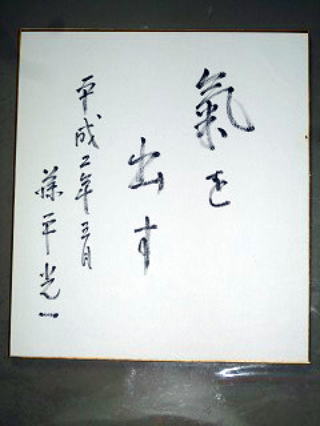 氣を
出す
平成二年三月
藤平光一